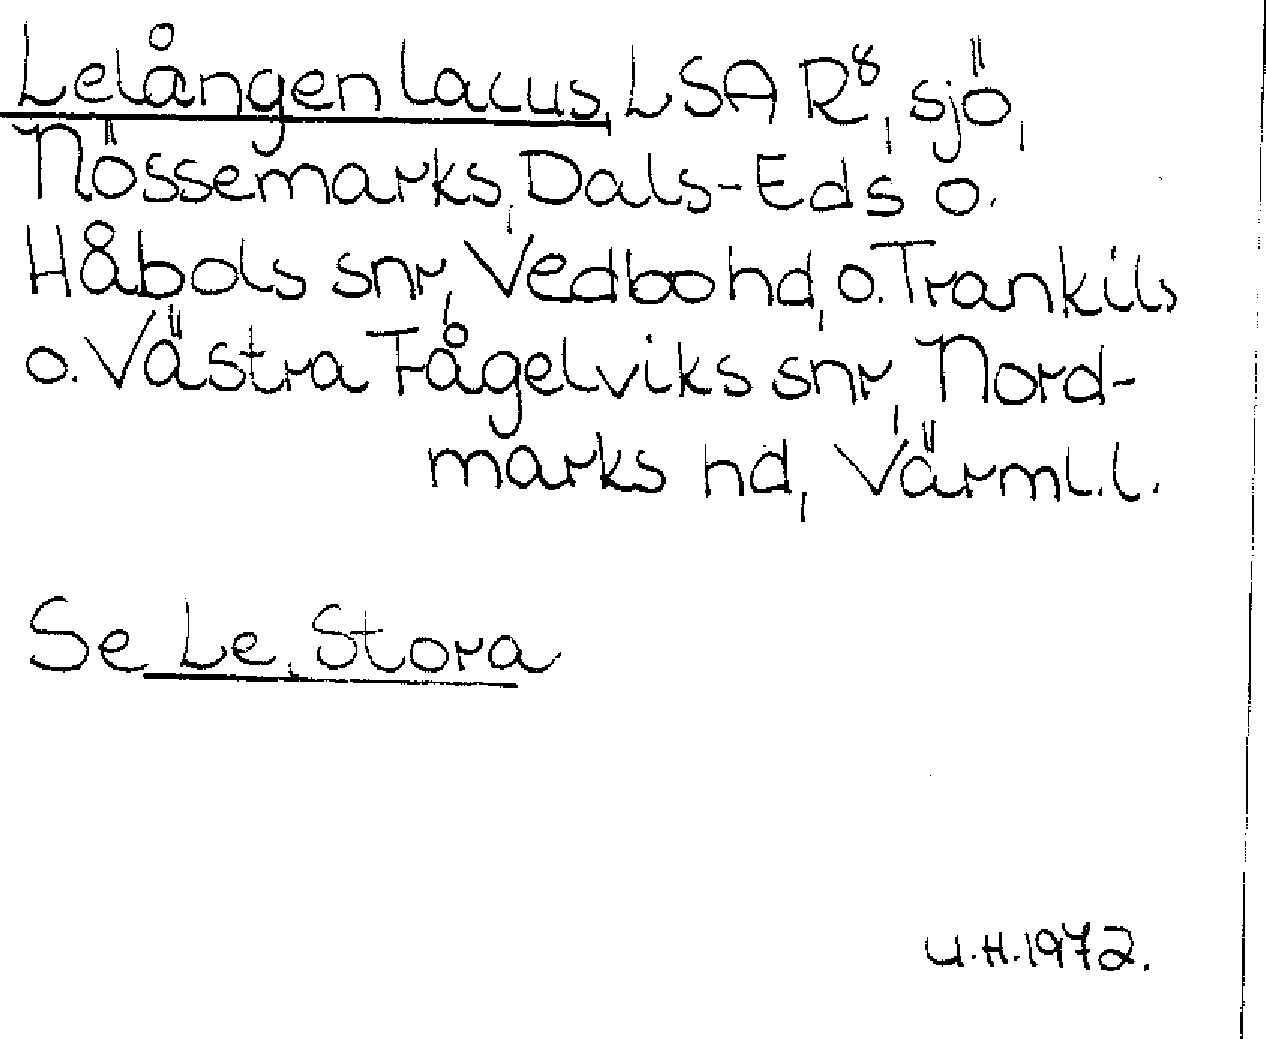 Lelången lacus, LSA R8, sjö,
Nössemarks, Dals-Eds o.
Håbols snr, Vedbo hd, o. Trankils
o. Västra Fågelviks snr, Nord-
marks hd, Värml. l.
Se Le, Stora
U.H. 1972.